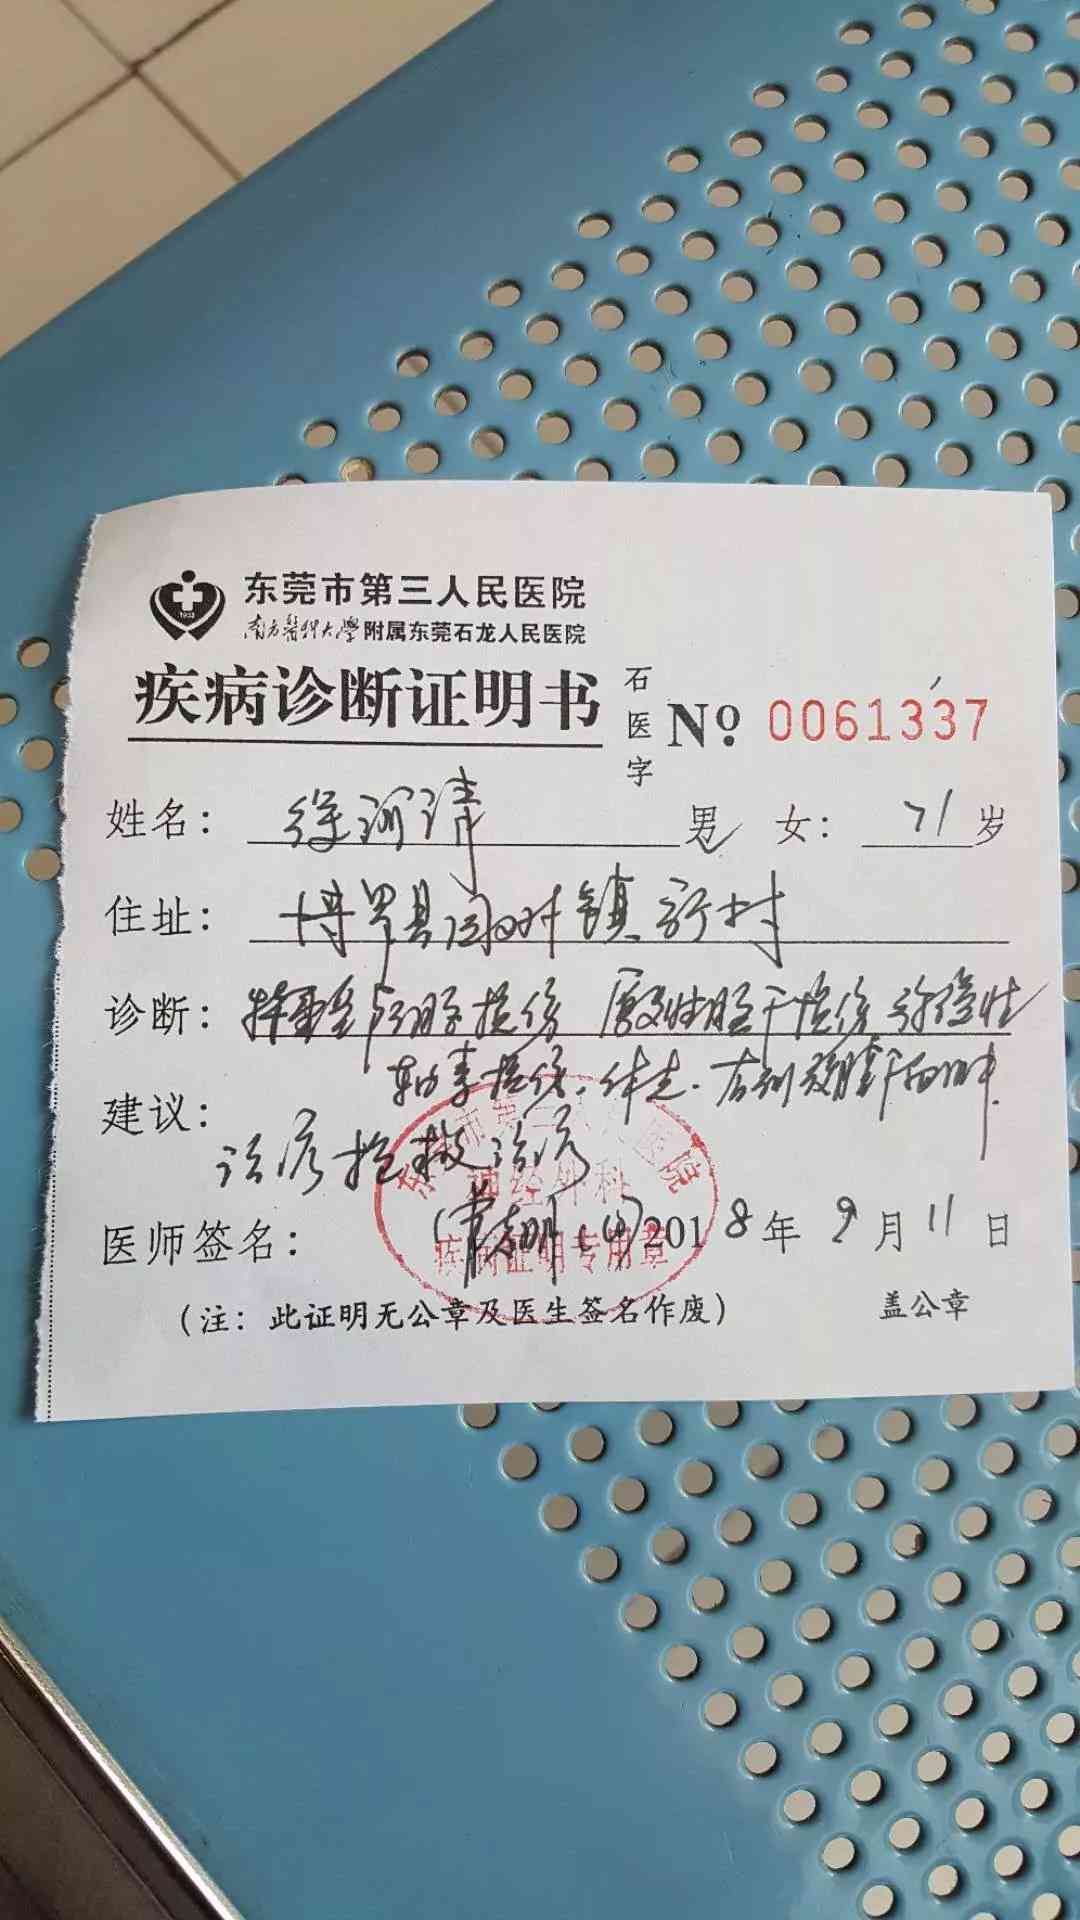 东莞市第三人民医院
南方醫科大學附属东莞石龙人民医院
疾病诊断证明书 石医字 No. 0061337
姓名： 徐润清 男 女： 71 岁
住址： 博罗县园洲镇 村
诊断： 特重型颅脑损伤 原发性脑干损伤 弥漫性
轴索损伤
建议：
诊疗 抢救治疗
医师签名： 2018年9月11日
东莞市第三人民医院
神经外科
疾病证明专用章
（注：此证明无公章及医生签名作废） 盖公章